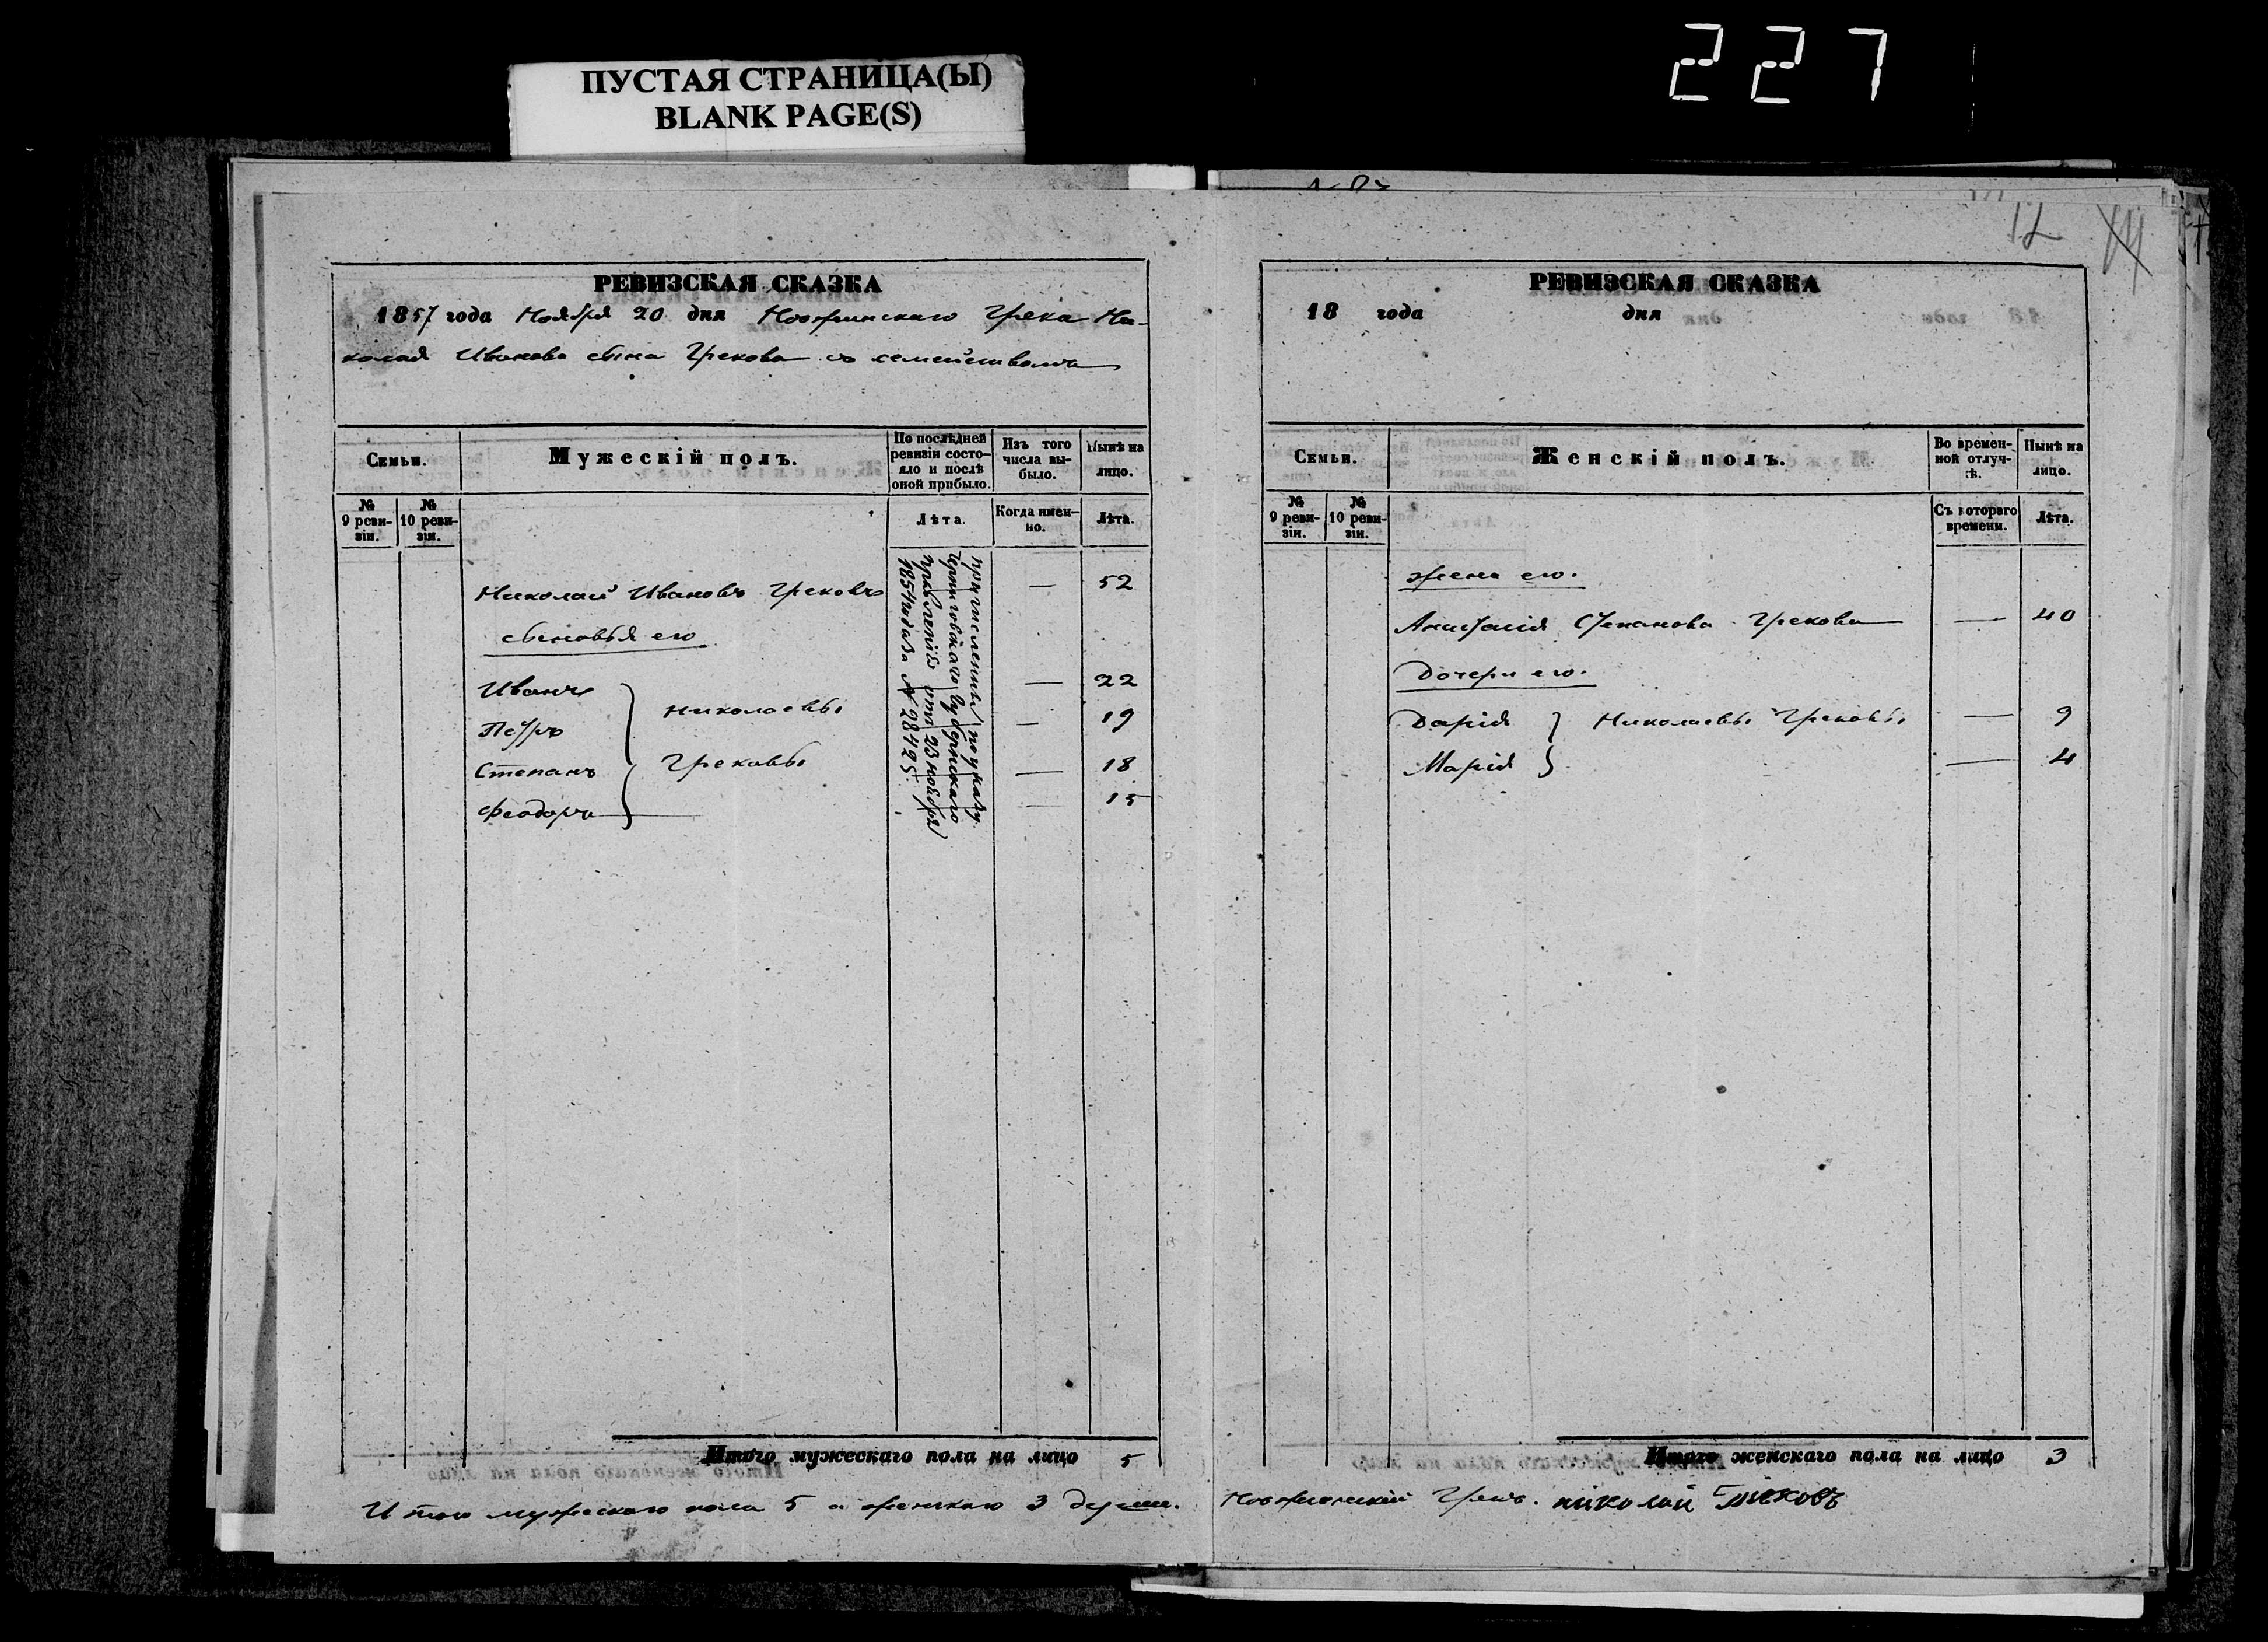 ПУСТАЯ СТРАНИЦА(Ы)
BLANK PAGE(S)
227
РЕВИЗСКАЯ СКАЗКА
1857 года Ноября 20 дня Грека Ни-
колая Иванова сына Грекова съ семействомъ
Семьи.
Мужескій полъ.
По послѣдней ревизіи состояло и послѣ оной прибыло.
Изъ того числа выбыло.
Нынѣ на лицо.
№ 9 ревизіи.
№ 10 ревизіи.
Лѣта.
Когда именно.
Лѣта.
Николай Ивановъ Грековъ — 52
сыновья его
Иванъ — 22
Петръ Николаевы — 19
Степанъ Грековы — 18
Феодоръ — 15
причисленны по указу
Черниговскаго Губернскаго
Правленія отъ 23 ноября
1854 года за № 28425.
Итого мужескаго пола на лицо 5
Итого мужескаго пола 5 и женскаго 3 души.
12
РЕВИЗСКАЯ СКАЗКА
18 года дня
Семьи.
Женскій полъ.
Во временной отлучкѣ.
Нынѣ на лицо.
№ 9 ревизіи.
№ 10 ревизіи.
Съ котораго времени.
Лѣта.
жена его.
Степанова Грекова — 40
Дочери его.
Дарія Николаевы Грековы — 9
Марія — 4
Итого женскаго пола на лицо 3
Грекъ. николай Грековъ